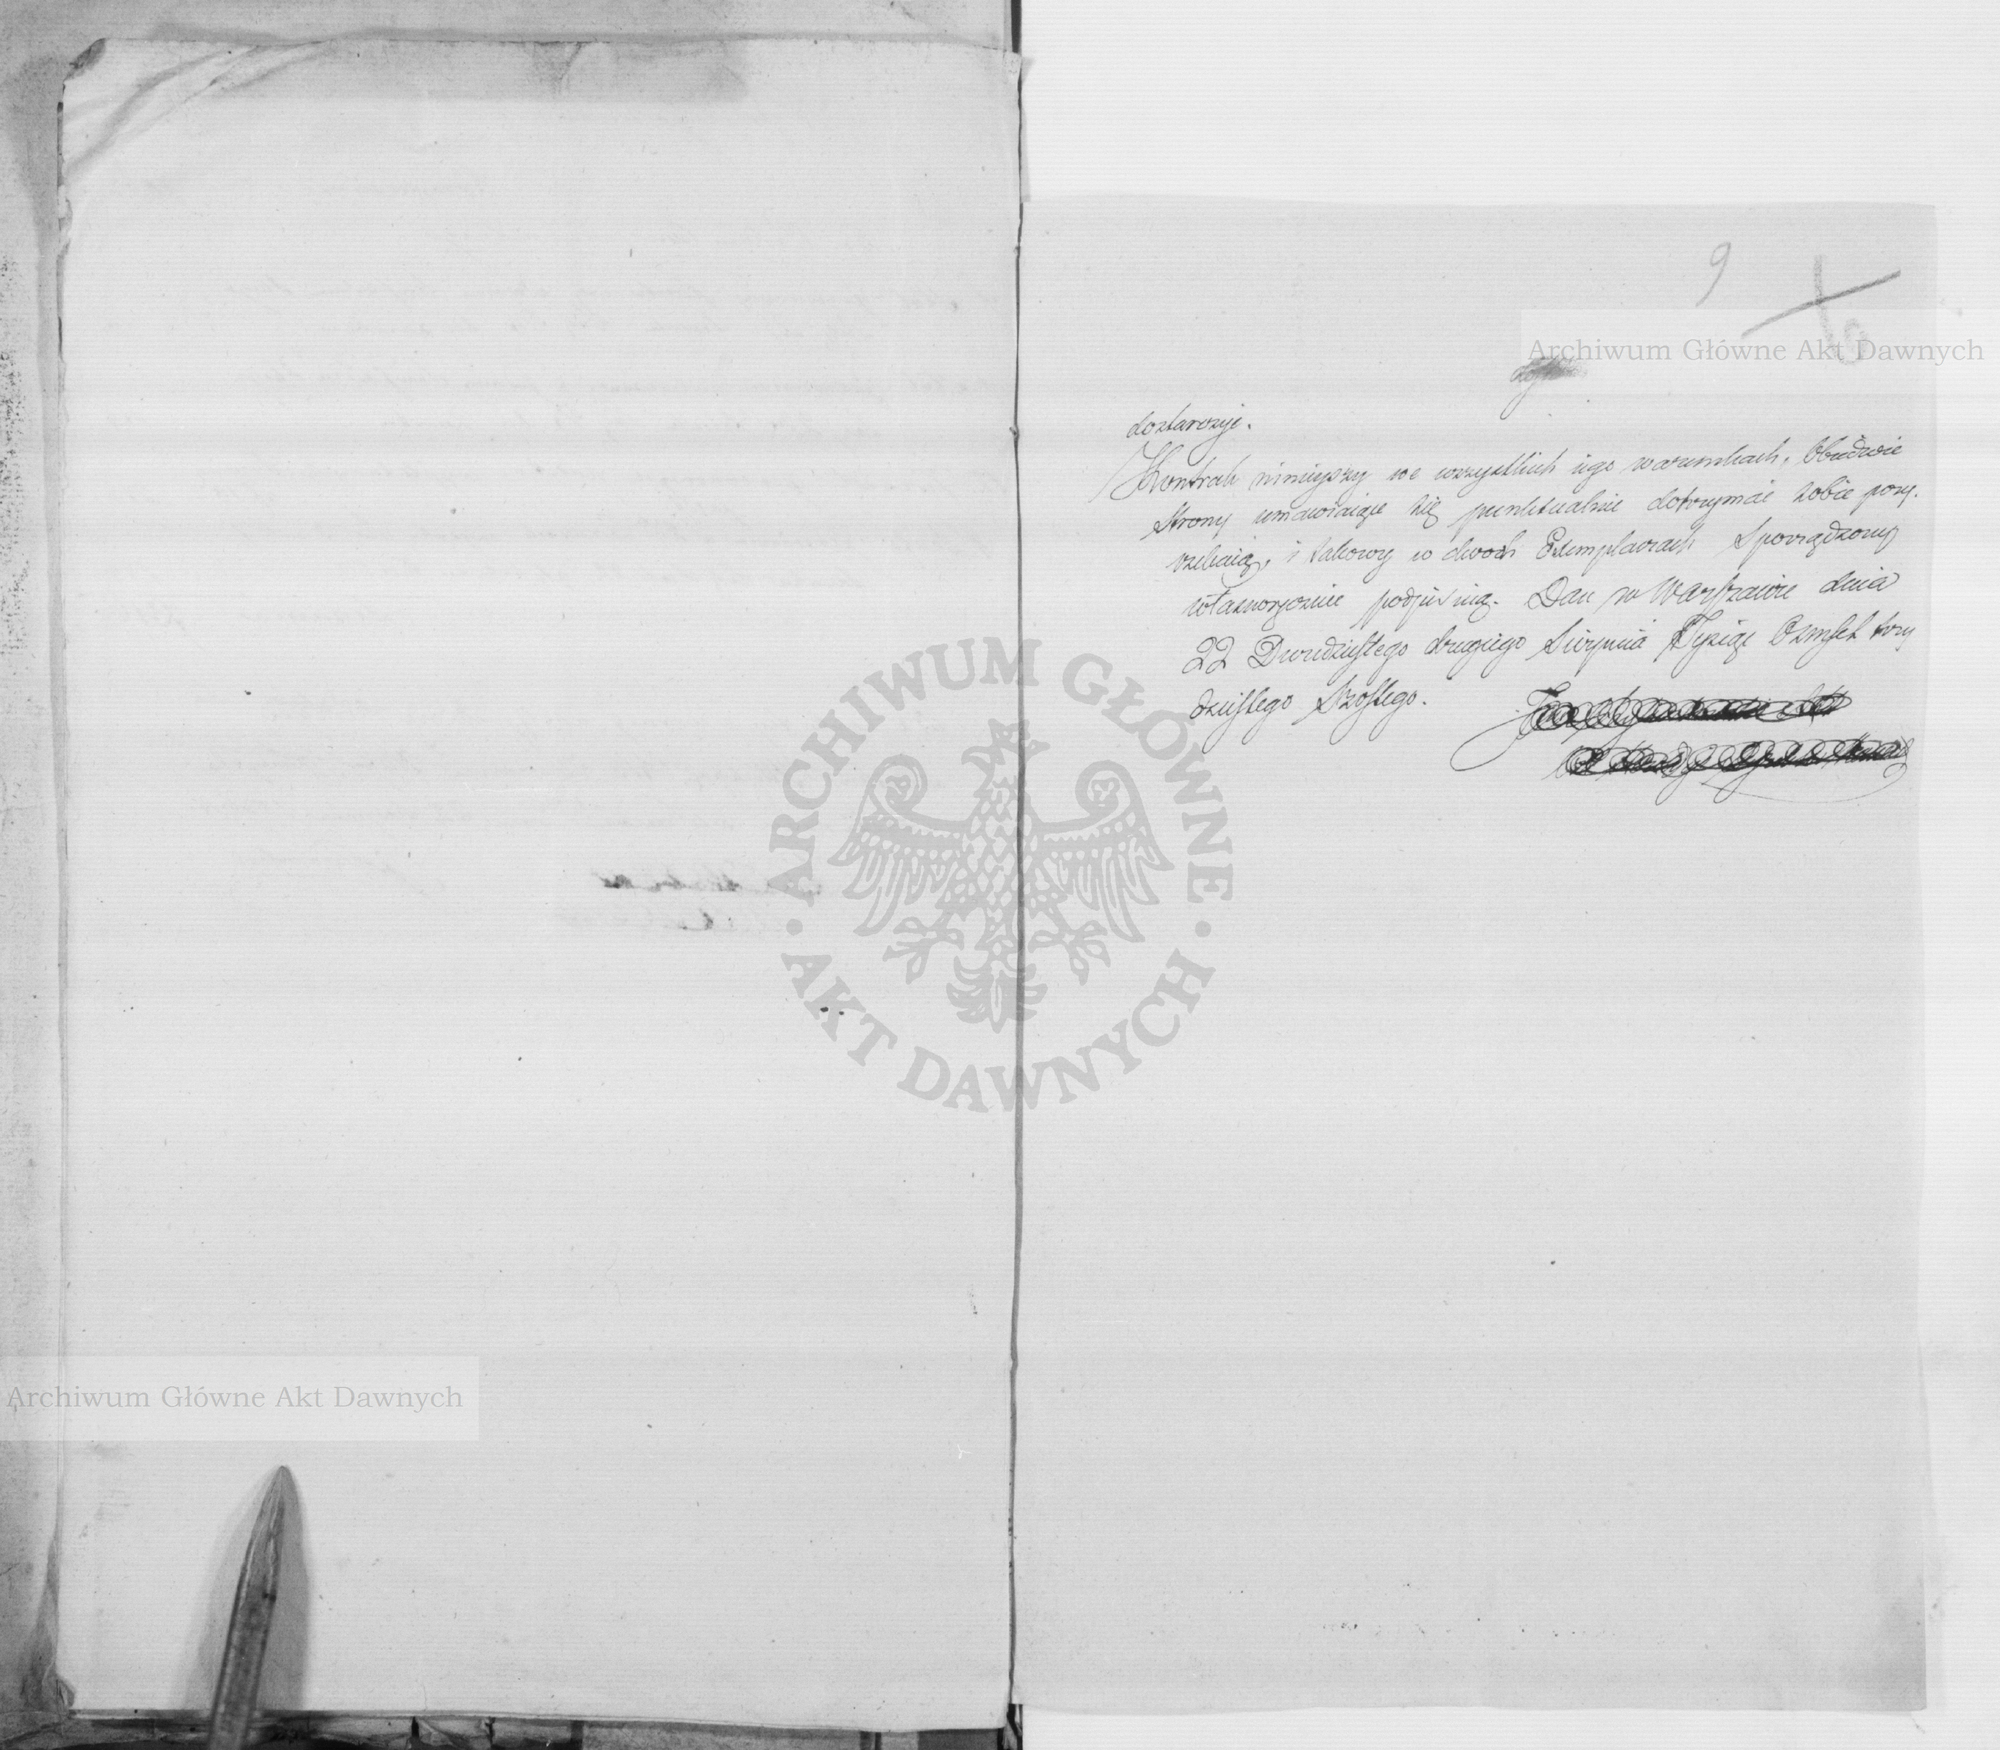 9
Archiwum Główne Akt Dawnych
dostarczyć.
Kontrakt ninieyszy we wszystkich iego warunkach, Obudwie
Strony umawiaiące się punktualnie dotrzymać sobie przy-
rzekaią, i takowy w dwóch Exemplarzach Sporządzony
własnoręcznie podpisuią. Dan w Warszawie dnia
22 Dwudziestego drugiego Sierpnia Tysiąc Osmset trzy
dziestego Szóstego.
ARCHIWUM GŁÓWNE
AKT DAWNYCH
Archiwum Główne Akt Dawnych